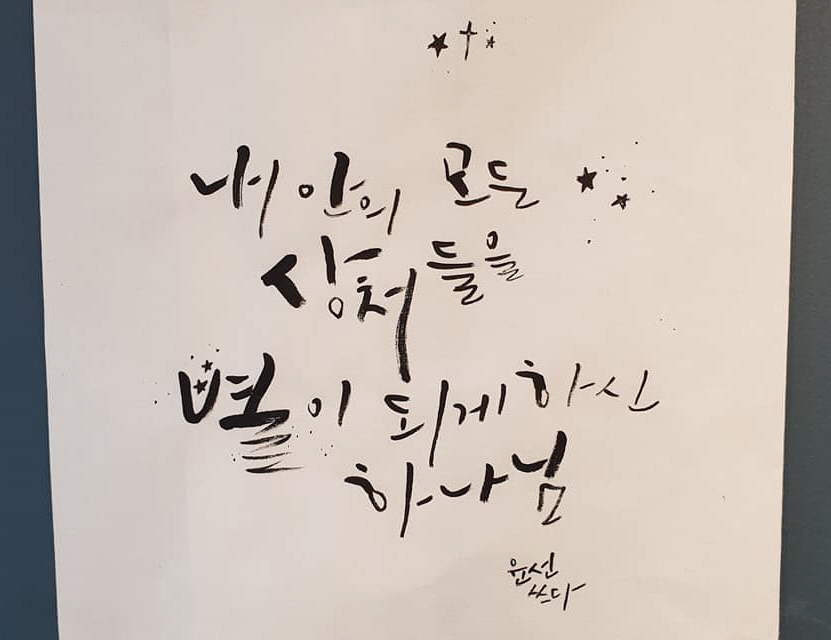 내 안의 모든
상처들을
별이 되게 하신
하나님
윤선
쓰다